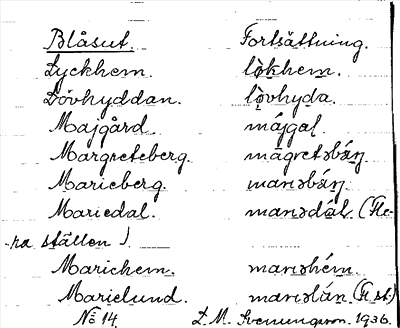 Blåsut. Fortsättning.
Lyckhem. lø̀khem.
Lövhyddan. lø̀vhyda.
Majgård. májgaḷ.
Margreteberg. màgretəbárj.
Marieberg. mariəbárj.
Mariedal. mariədál. (Fle-
ra ställen).
Mariehem. mariəhém.
Marielund. mariəlún. (Fl. st.)
№ 14. L.M. Svenungsson. 1936.